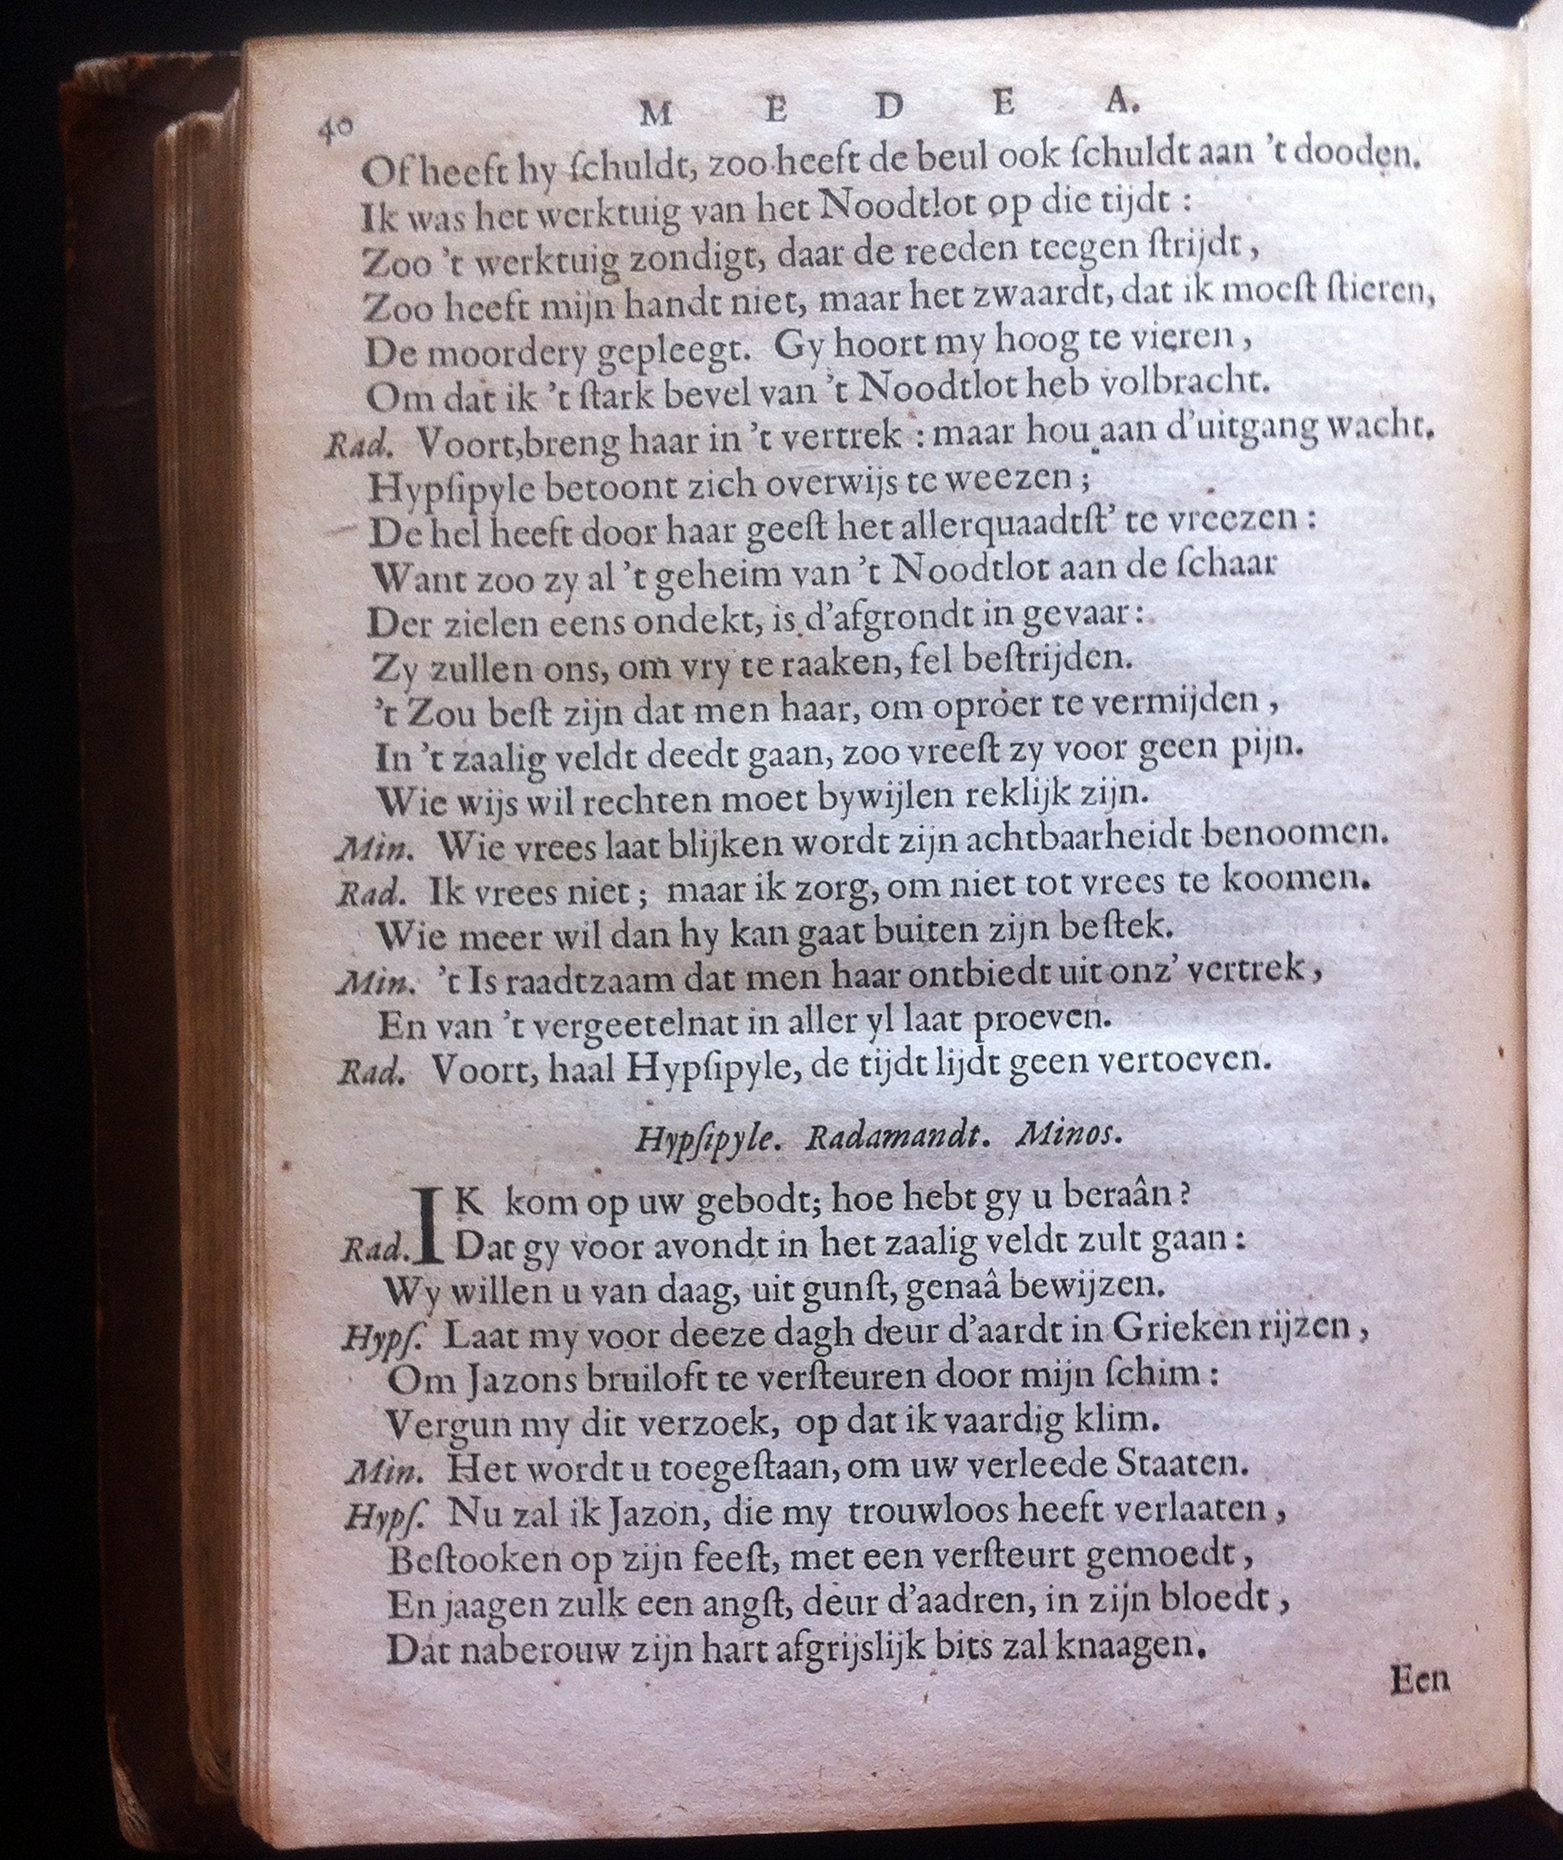 40 M E D E A.
Of heeft hy ſchuldt, zoo heeft de beul ook ſchuldt aan 't dooden.
Ik was het werktuig van het Noodtlot op die tijdt :
Zoo 't werktuig zondigt, daar de reeden teegen ſtrijdt,
Zoo heeft mijn handt niet, maar het zwaardt, dat ik moeſt ſtieren,
De moordery gepleegt. Gy hoort my hoog te vieren,
Om dat ik 't ſtark bevel van 't Noodtlot heb volbracht.
Rad. Voort, breng haar in 't vertrek : maar hou aan d'uitgang wacht.
Hypſipyle betoont zich overwijs te weezen ;
De hel heeft door haar geeſt het allerquaadtſt' te vreezen :
Want zoo zy al 't geheim van 't Noodtlot aan de ſchaar
Der zielen eens ondekt, is d'afgrondt in gevaar :
Zy zullen ons, om vry te raaken, fel beſtrijden.
't Zou beſt zijn dat men haar, om oproer te vermijden,
In 't zaalig veldt deedt gaan, zoo vreeſt zy voor geen pijn.
Wie wijs wil rechten moet bywijlen reklijk zijn.
Min. Wie vrees laat blijken wordt zijn achtbaarheidt benoomen.
Rad. Ik vrees niet ; maar ik zorg, om niet tot vrees te koomen.
Wie meer wil dan hy kan gaat buiten zijn beſtek.
Min. 't Is raadtzaam dat men haar ontbiedt uit onz' vertrek,
En van 't vergeetelnat in aller yl laat proeven.
Rad. Voort, haal Hypſipyle, de tijdt lijdt geen vertoeven.
Hypſipyle. Radamandt. Minos.
IK kom op uw gebodt; hoe hebt gy u beraân ?
Rad. Dat gy voor avondt in het zaalig veldt zult gaan :
Wy willen u van daag, uit gunſt, genaâ bewijzen.
Hypſ. Laat my voor deeze dagh deur d'aardt in Grieken rijzen,
Om Jazons bruiloft te verſteuren door mijn ſchim :
Vergun my dit verzoek, op dat ik vaardig klim.
Min. Het wordt u toegeſtaan, om uw verleede Staaten.
Hypſ. Nu zal ik Jazon, die my trouwloos heeft verlaaten,
Beſtooken op zijn feeſt, met een verſteurt gemoedt,
En jaagen zulk een angſt, deur d'aadren, in zijn bloedt,
Dat naberouw zijn hart afgrijslijk bits zal knaagen.
Een